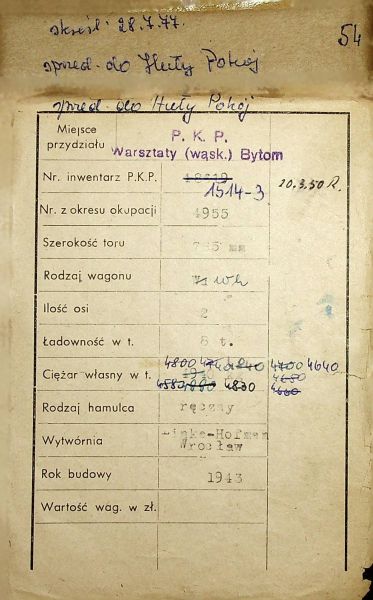 skreśl. 28.7.77.
54
sprzed. do Huty Pokój
sprzed do Huty Pokój
Miejsce przydziału P. K. P. Warsztaty (wąsk.) Bytom
Nr. inwentarz P.K.P. 1514-3 20.3.50 R.
Nr. z okresu okupacji 4955
Szerokość toru 785 mm
Rodzaj wagonu wh
Ilość osi 2
Ładowność w t. 8 t.
4800 4700 4640
Ciężar własny w t. 4650
4580 4880 4830 4660
Rodzaj hamulca ręczny
Wytwórnia Linke-Hofman Wrocław
Rok budowy 1943
Wartość wag. w zł.